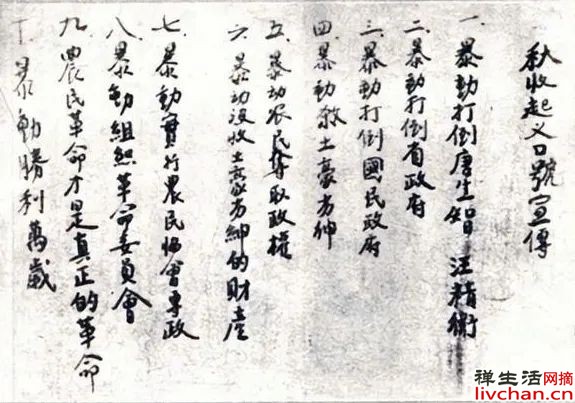 秋收起义口號宣傳
一 暴動打倒唐生智 汪精衛
二 暴動打倒省政府
三 暴動打倒國民政府
四 暴動殺土豪劣紳
五 暴动农民奪取政權
六 暴动没收土豪劣紳的財產
七 暴動實行農民協會專政
八 暴動組織革命委員會
九 農民革命才是真正的革命
十 暴動勝利萬歲
禅生活网摘
livchan.cn